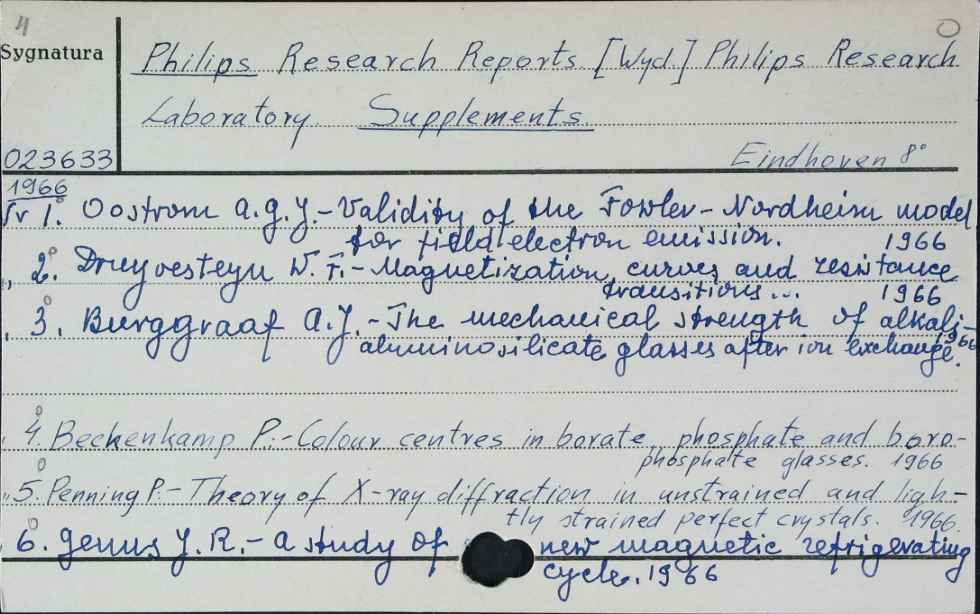 4
Sygnatura
Philips Research Reports [Wyd.] Philips Research
Laboratory Supplements
023633
Eindhoven 8°
1966
Nr 1. Oostrom A.G.J.-Validity of the Fowler-Nordheim model
for field electron emission. 1966
„ 2. Druyvesteyn W.F.-Magnetization curves and resistance
transitions... 1966
„ 3. Burggraaf A.J.-The mechanical strength of alkali-
aluminosilicate glasses after ion exchange. 1966
„ 4. Beckenkamp P.-Colour centres in borate, phosphate and boro-
phosphate glasses. 1966
„ 5. Penning P.-Theory of X-ray diffraction in unstrained and ligh-
tly strained perfect crystals. 1966.
„ 6. Genus J.R.-A study of new magnetic refrigerating
cycle. 1966